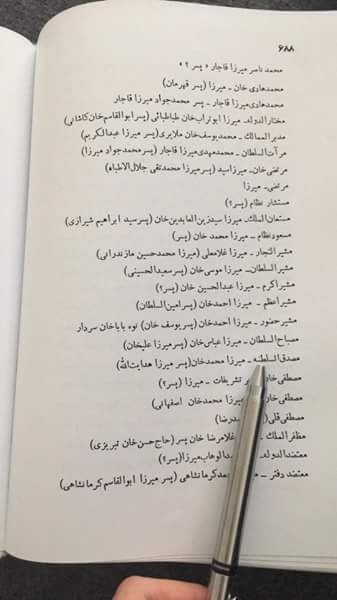 ۶۸۸
محمد ناصر میرزا قاجار « پسر ؟ »
محمدهادی خان ـ میرزا (پسر قهرمان)
محمدهادی میرزا قاجار ـ پسر محمدجواد میرزا قاجار
مختارالدوله ـ میرزا ابوتراب خان طباطبائی (پسر ابوالقاسم خان کاشانی)
مدیرالممالک ـ محمدیوسف خان ملایری (پسر میرزا عبدالکریم)
مرآت السلطان ـ محمدمهدی میرزا قاجار (پسر محمدجواد میرزا)
مرتضی خان ـ میرزاسید (پسر میرزا محمدتقی جلال الاطباء)
مرتضی ـ میرزا
مستشار نظام (پسر؟)
مستعان الملک ـ میرزا سیدزین العابدین خان (پسر سید ابراهیم شیرازی)
مسعود نظام ـ میرزا محمد خان (پسر)
مشیرالتجار ـ میرزا غلامعلی (پسر میرزا محمدحسین مازندرانی)
مشیرالسلطان ـ میرزا موسی خان (پسر سعیدالحسینی)
مشیر اکرم ـ میرزا عبدالحسین خان (پسر؟)
مشیر اعظم ـ میرزا احمدخان (پسر امین السلطان)
مشیر حضور ـ میرزا احمدخان (پسر یوسف خان) نوه باباخان سردار
مصباح السلطان ـ میرزا عباس خان (پسر میرزا علیخان)
مصدق السلطنه ـ میرزا محمدخان (پسر میرزا هدایت الله)
مصطفی خان تشریفات ـ میرزا (پسر؟)
مصطفی خان میرزا محمدخان اصفهانی)
مصطفی قلی
مظفرالملک ـ غلامرضا خان پسر (حاج حسن خان تبریزی)
معتضدالدوله ـ عبدالوهاب میرزا (پسر؟)
معتضد دفتر ـ محمد کرمانشاهی (پسر میرزا ابوالقاسم کرمانشاهی)